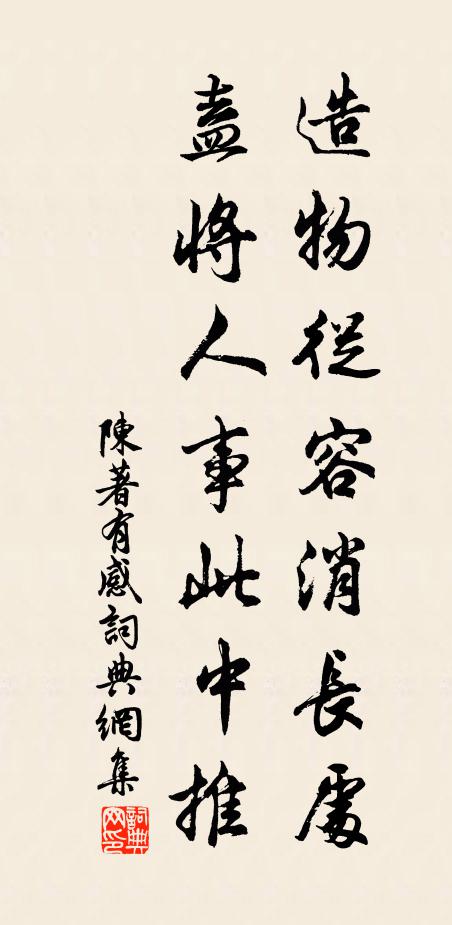 造物從容消長處
盍將人事此中推
陳著有感詞典網集
詞典网印